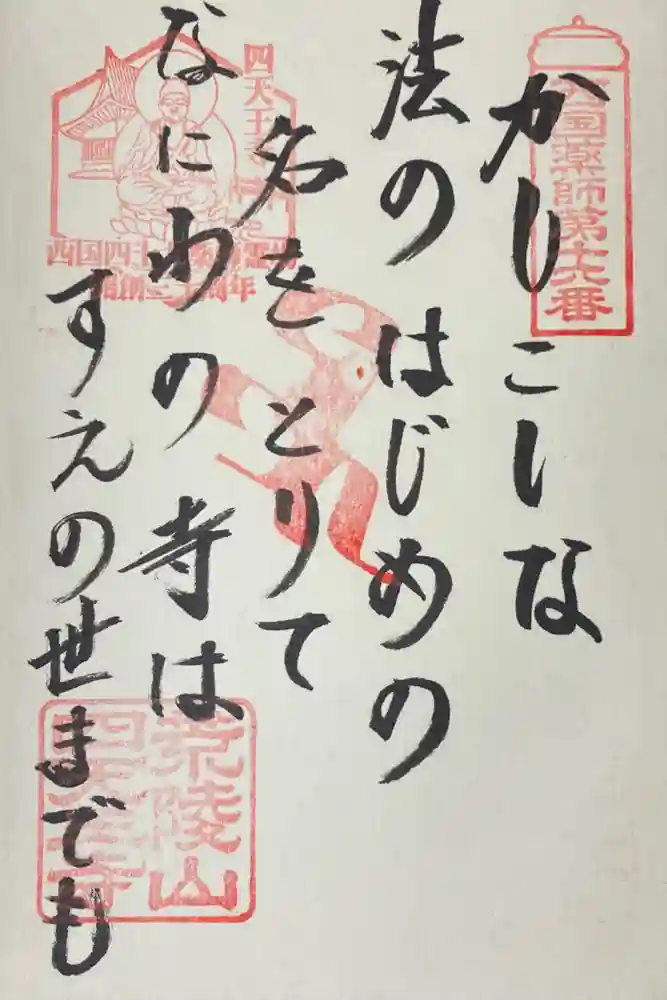 西国薬師第十六番
かしこしな
法のはじめの
名をとりて
なにわの寺は
すえの世までも
四天王寺
西国四十九薬師霊場
周年
荒陵山
四天王寺